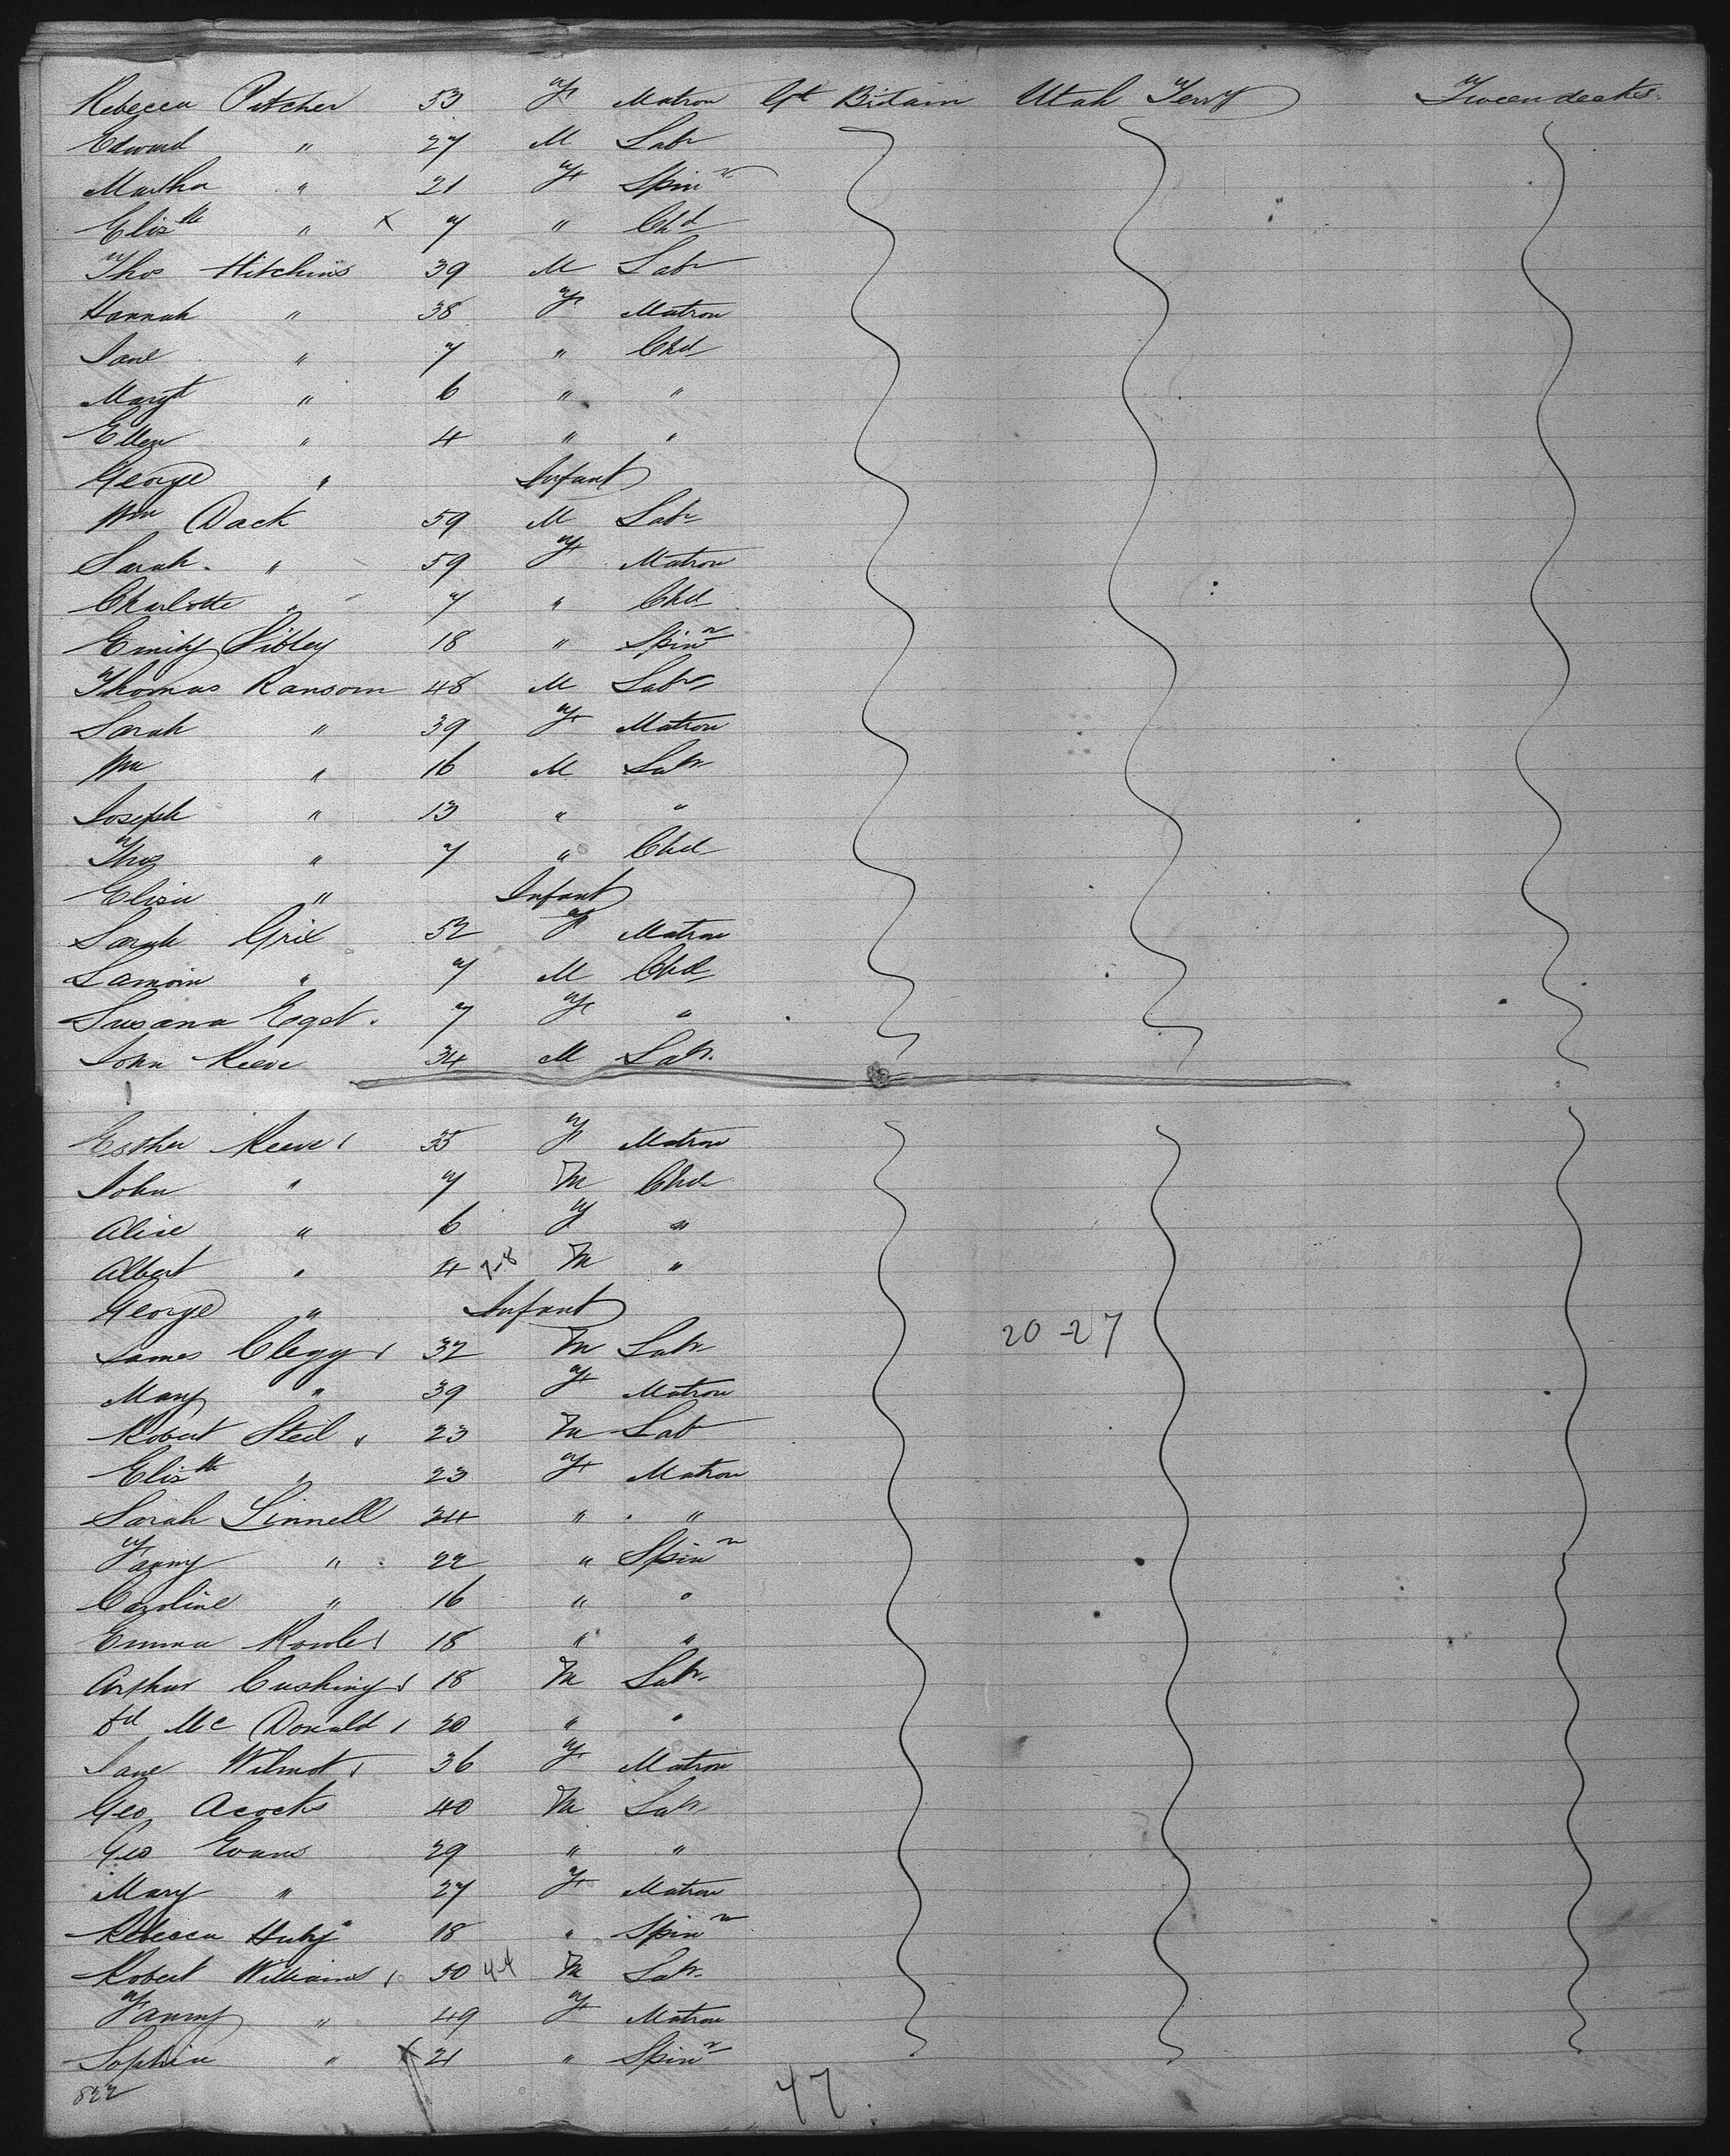 Rebecca Pitcher 53 F Matron Gt Bitain Utah Terry Tweendecks.
Edward " 27 M Labr
Martha " 21 F Spinr
Elizth " x 7 " Chd
Thos Hitchins 39 M Labr
Hannah " 38 F Matron
Jane " 7 " Chd
Margt " 6 " "
Ellen " 4 " "
George " Infant
Wm Dack 59 M Labr
Sarah " 59 F Matron
Charlotte " 7 " Chd
Emily Sibley 18 " Spinr
Thomas Ransom 48 M Labr
Sarah " 39 F Matron
Wm " 16 M Labr
Joseph " 13 " "
Thos " 7 " Chd
Eliza " Infant
Sarah Grix 52 F Matron
" 7 M Chd
Susana 7 F "
John Reeve 34 M Labr
Esther Reeve 35 F Matron
John " 7 M Chd
Alice " 6 F "
Albert " 4 7-8 M "
George " Infant
20-27
James Clegg 32 M Labr
Mary " 39 F Matron
Robert Steel 23 M Labr
Elizth " 23 F Matron
Sarah Linnell 24 " "
Fanny " 22 " Spinr
Caroline " 16 " "
Emma Rowle 18 " "
Arthur Cushing 18 M Labr
Mc Donald 20 " "
Jane Wilmot 36 F Matron
Geo Acocks 40 M Labr
Geo Evans 29 " "
Mary " 27 F Matron
Rebecca 18 " Spinr
Robert Williams 50 44 M Labr
Fanny " 49 F Matron
Sophia " x 21 " Spinr
822
47